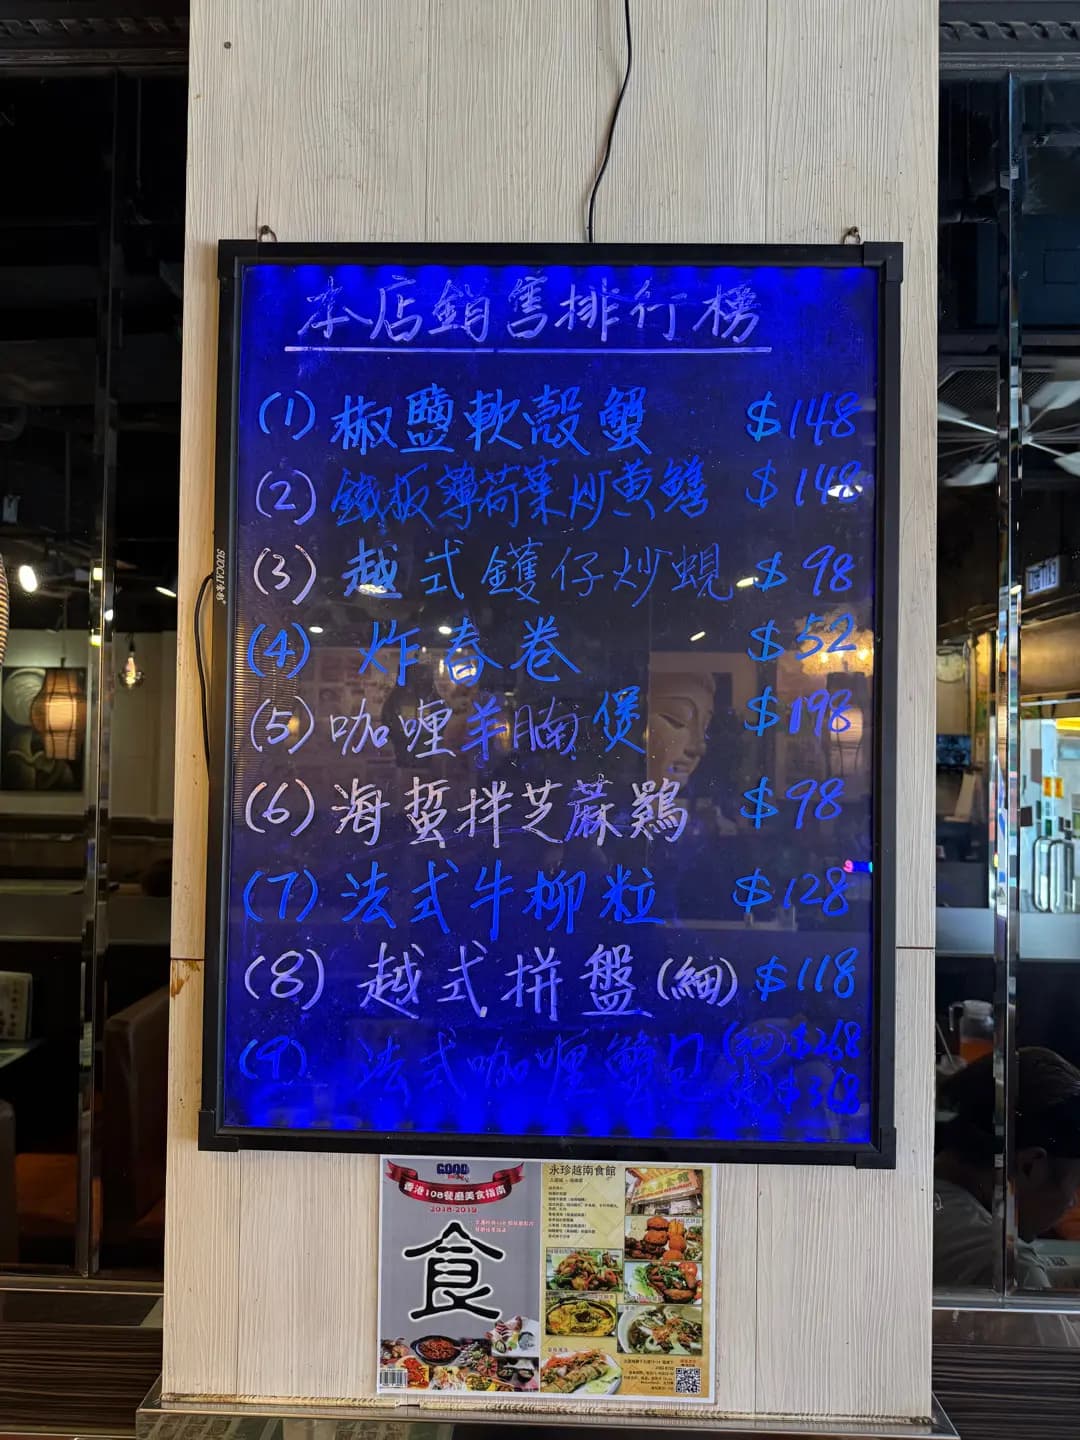 本店銷售排行榜
(1) 椒鹽軟殼蟹 $148
(2) 鐵板薄荷葉炒黃鱔 $148
(3) 越式鑊仔炒蜆 $98
(4) 炸春卷 $52
(5) 咖喱羊腩煲 $198
(6) 海蜇拌芝蔴鷄 $98
(7) 法式牛柳粒 $128
(8) 越式拼盤(細) $118
(9) 法式咖喱蟹 (細) $268
GOOD
香港108餐廳美食指南
2018-2019
食
永珍越南食館